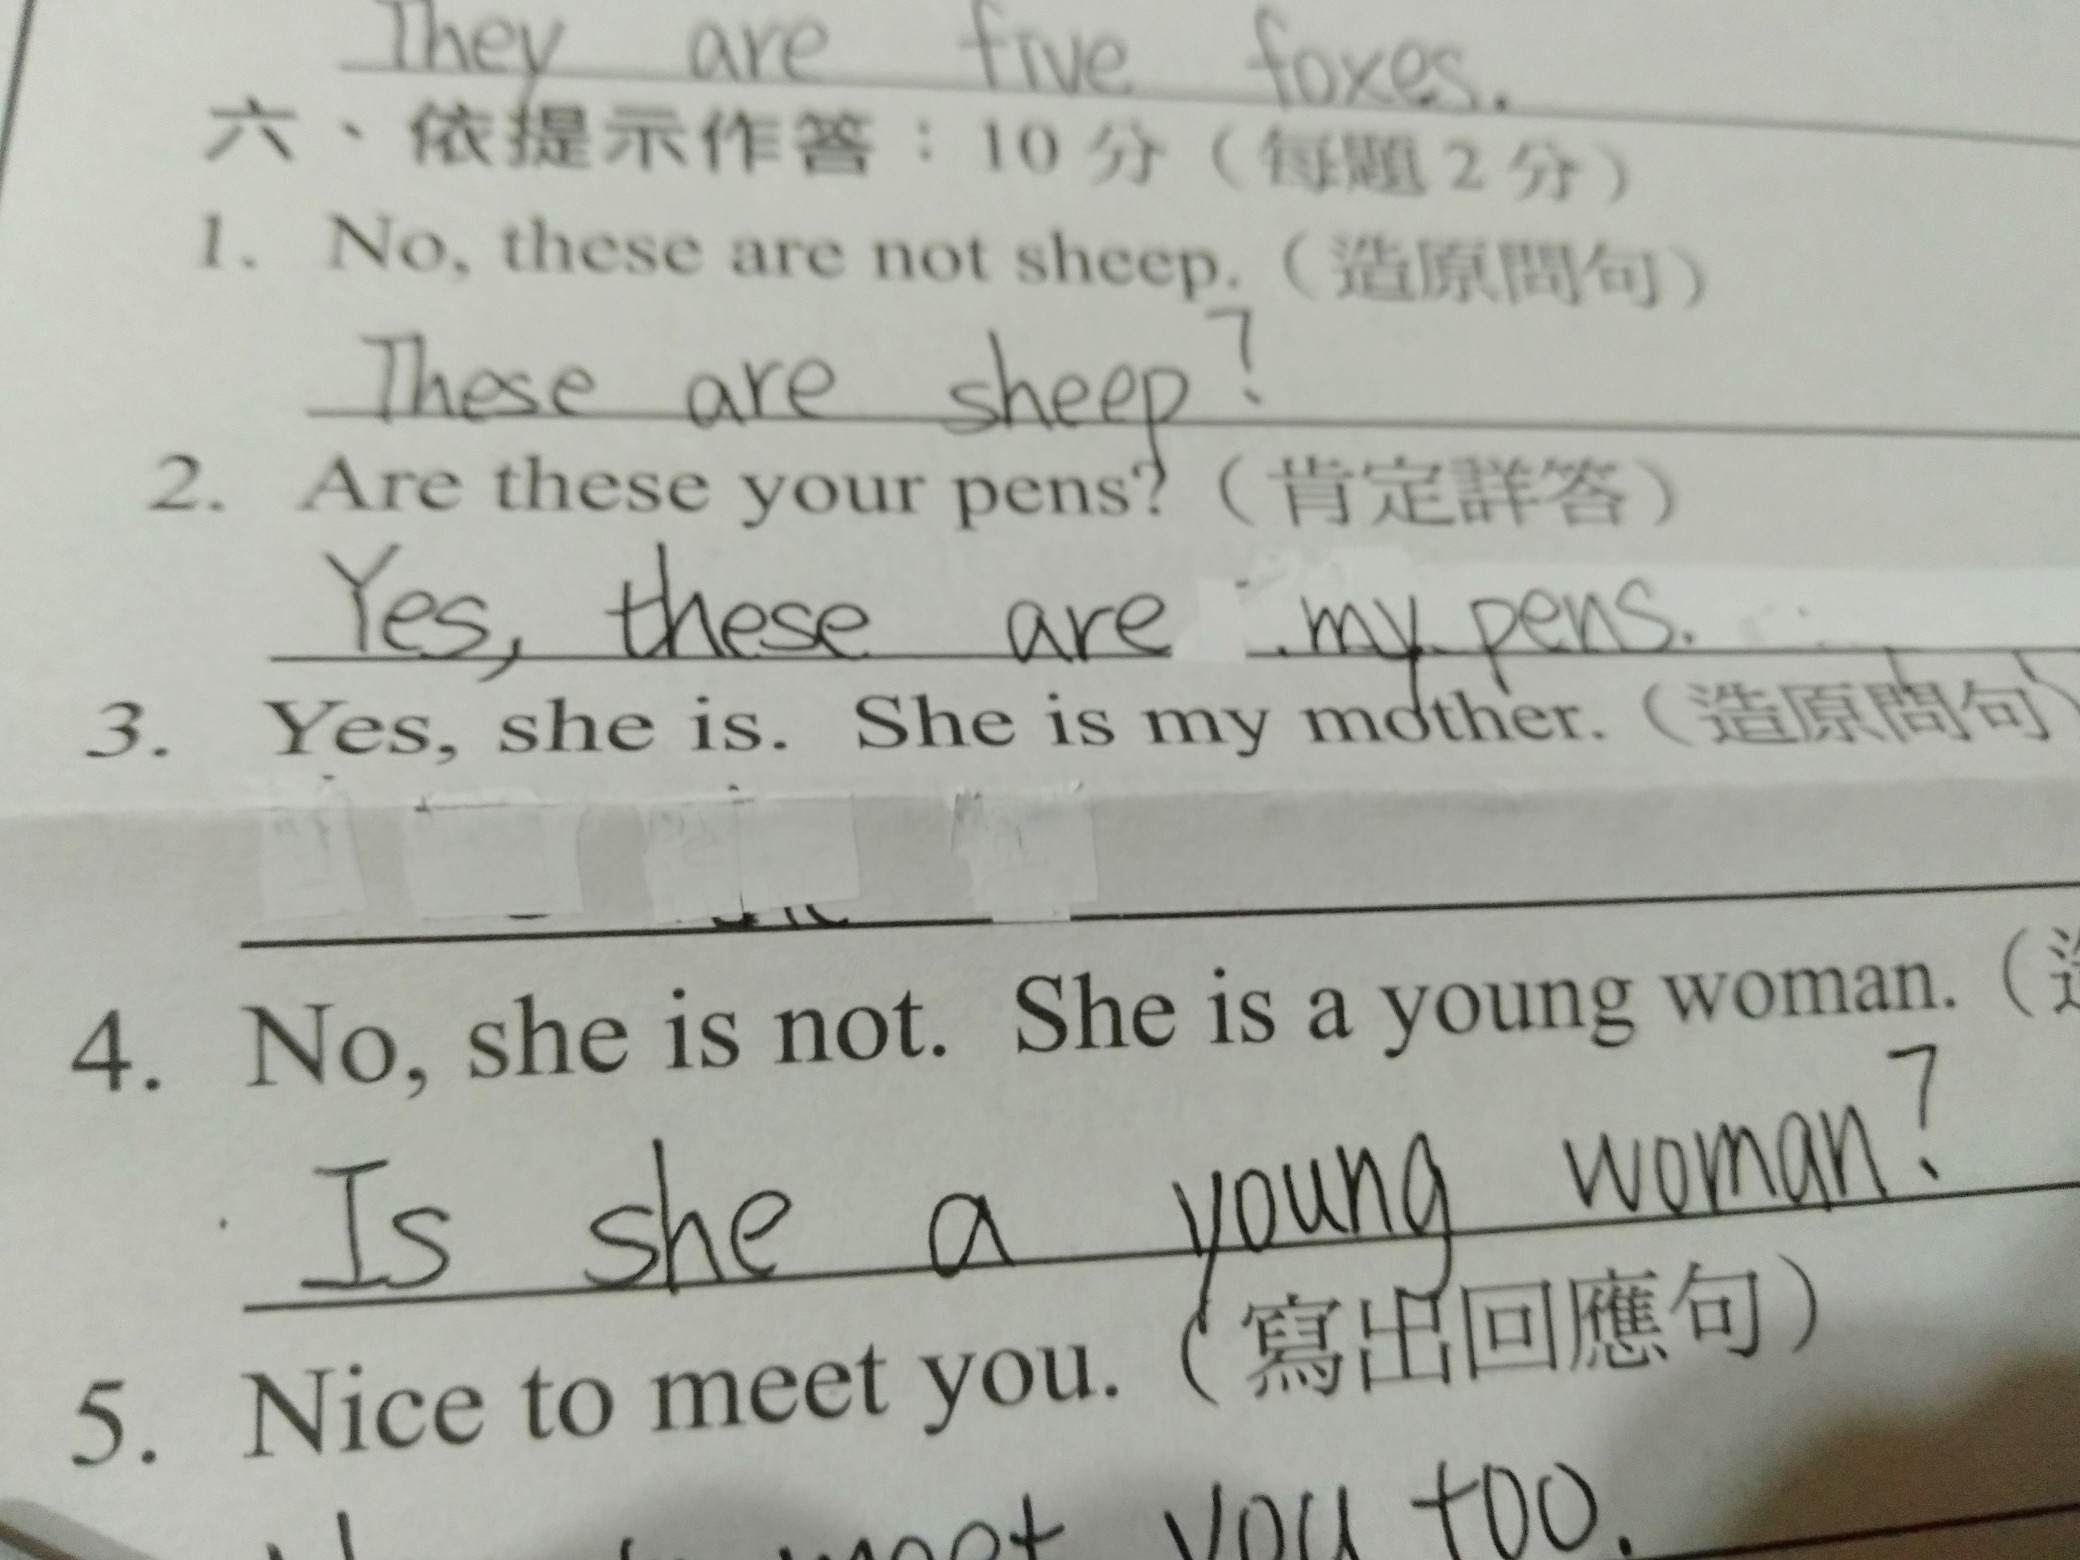 They are five foxes.
六、依提示作答：10 分（每題 2 分）
1. No, these are not sheep.（造原問句）
These are sheep?
2. Are these your pens?（肯定詳答）
Yes, these are my pens.
3. Yes, she is. She is my mother.（造原問句）
4. No, she is not. She is a young woman.（造
Is she a young woman?
5. Nice to meet you.（寫出回應句）
meet you too.